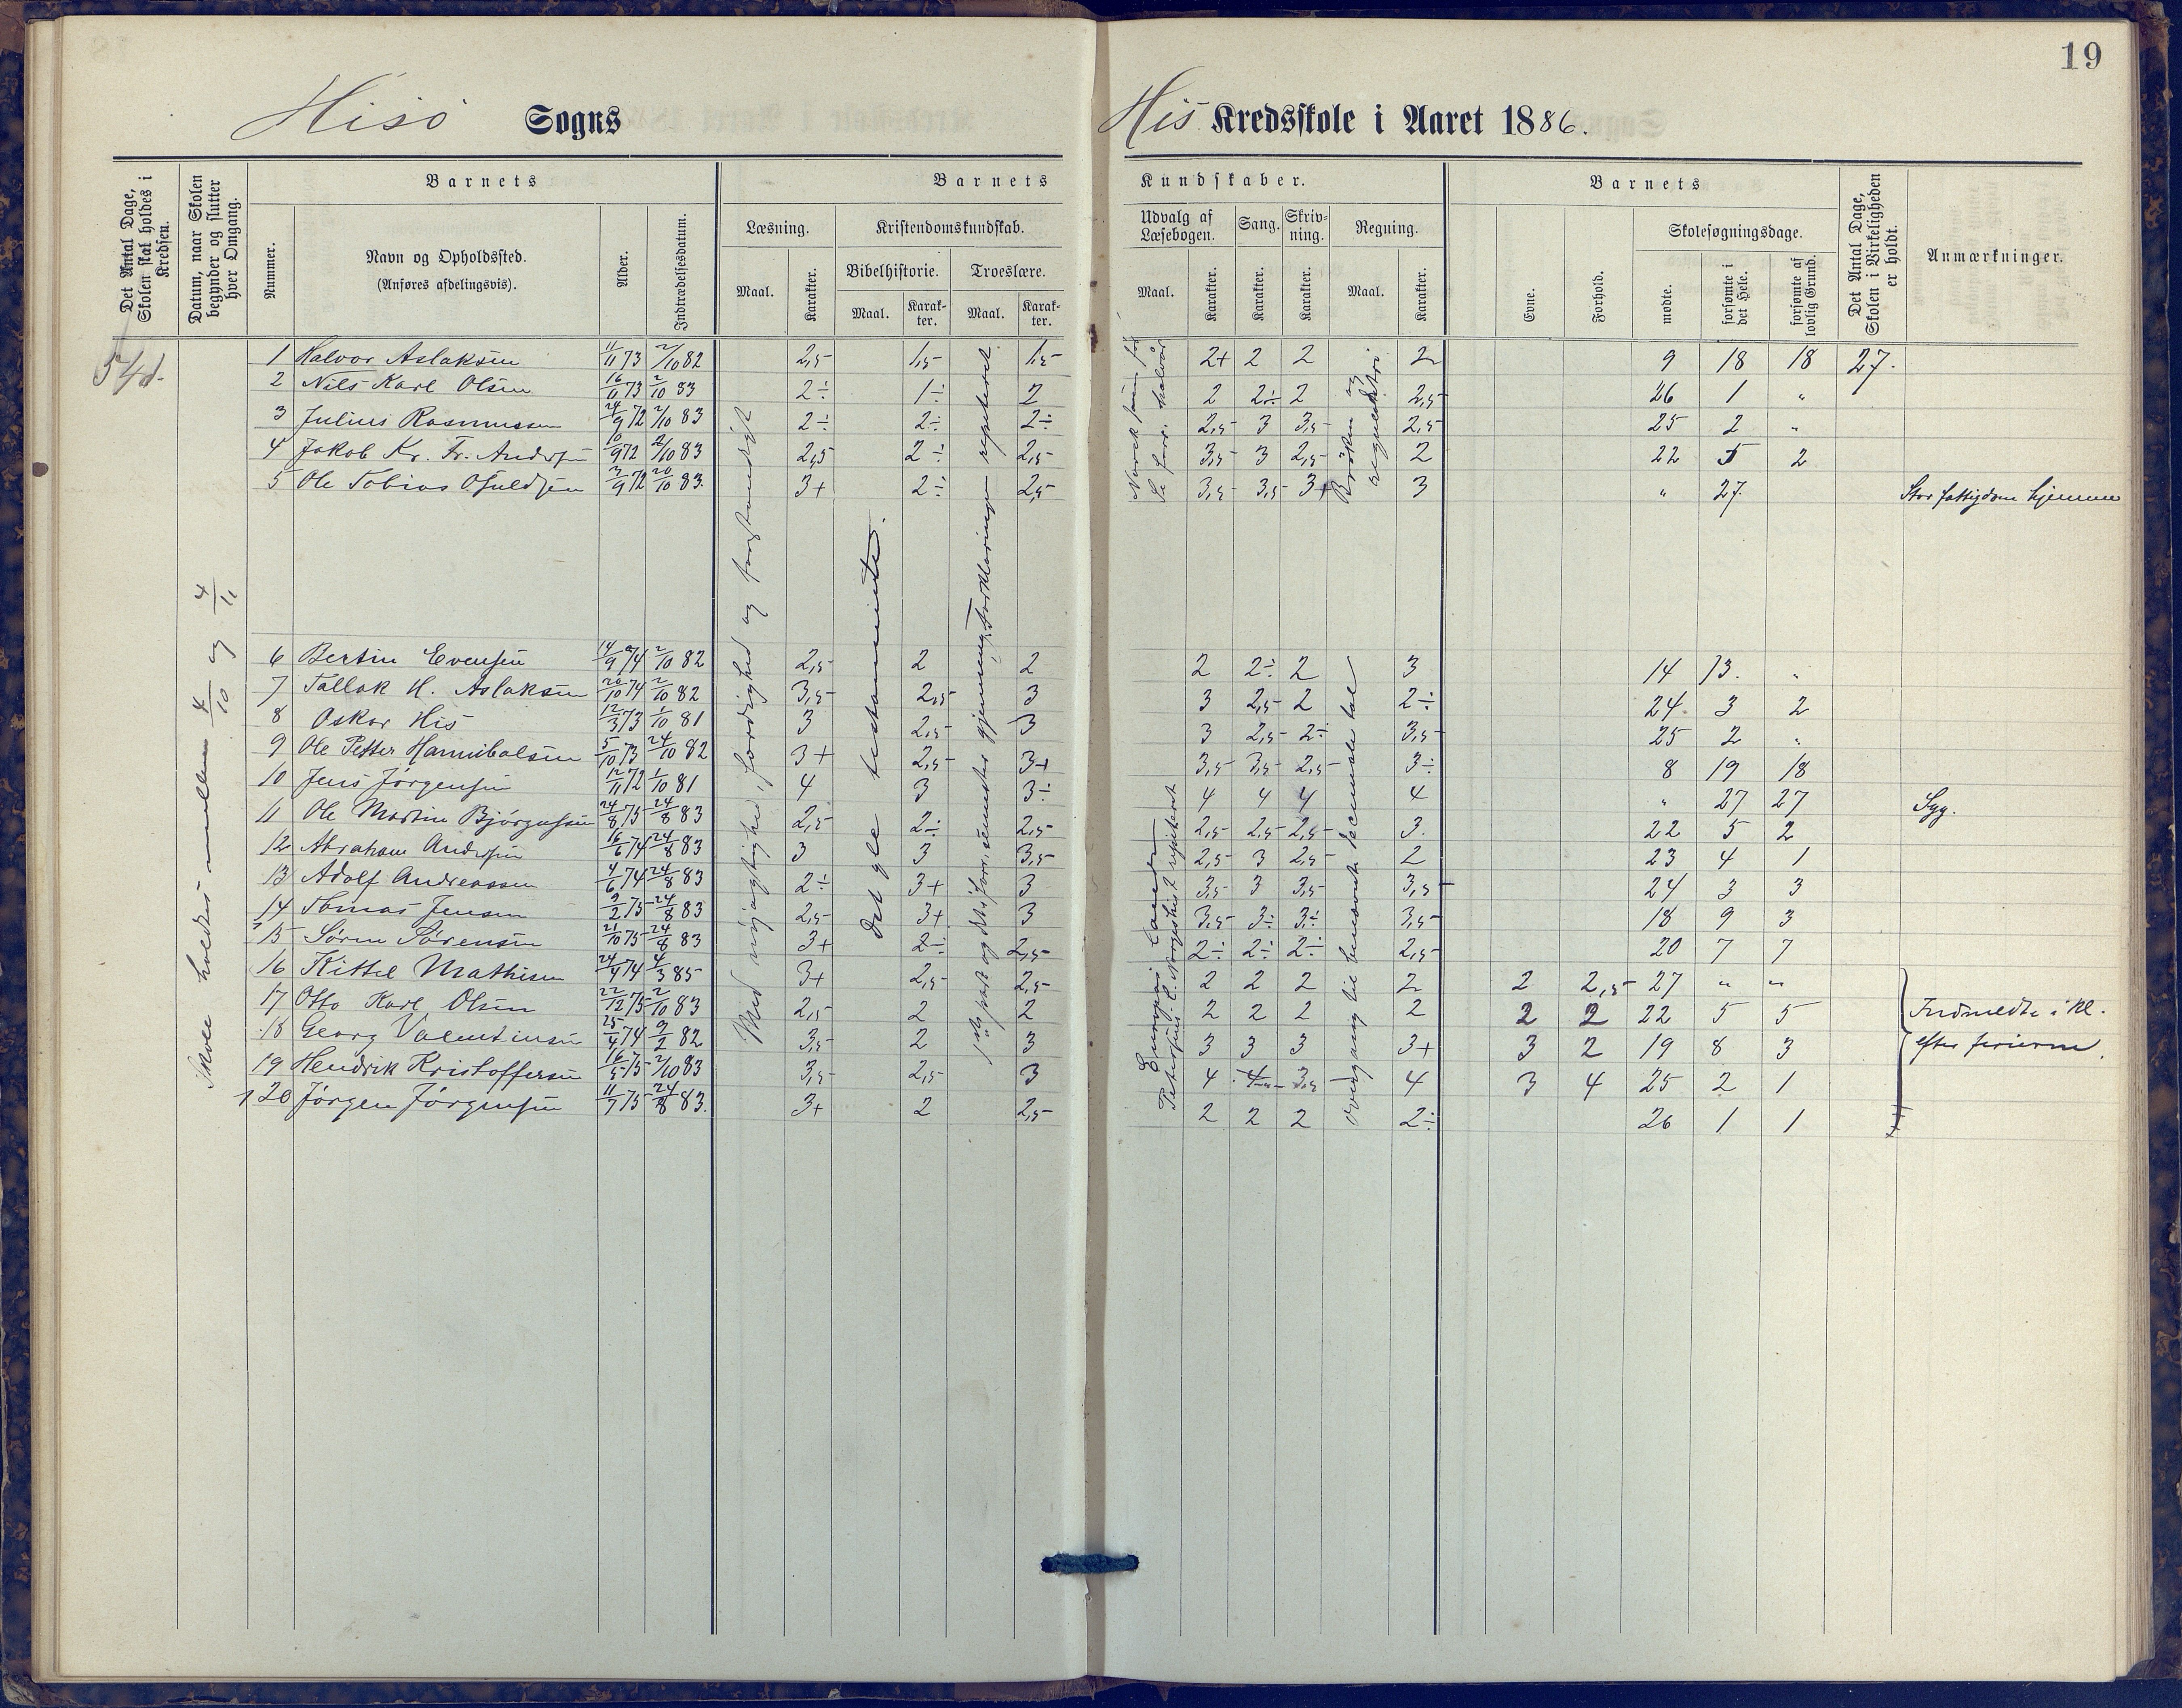 19
Hisö Sogns His Kredsskole i Aaret 1886.
Det Antal Dage, Skolen skal holdes i Kredsen.
Datum, naar Skolen begynder og slutter hver Omgang.
Barnets
Nummer.
Navn og Opholdssted. (Anføres afdelingsvis).
Alder.
Indtrædelsesdatum.
Barnets Kundskaber.
Læsning.
Maal. Karakter.
Kristendomskundskab.
Bibelhistorie. Troeslære.
Maal. Karakter. Maal. Karakter.
Udvalg af Læsebogen. Sang. Skrivning. Regning.
Maal. Karakter. Karakter. Karakter. Maal. Karakter.
Barnets
Evne. Forhold.
Skolesøgningsdage.
mødte. forsømte i det Hele. forsømte af lovlig Grund.
Det Antal Dage, Skolen i Virkeligheden er holdt.
Anmærkninger.
54 d.
Skole holdtes mellem 4/10 og 4/11
Med nöjagtighed, færdighed og
Det gle testamente.
repeteret
Brøken og
overgang til benævnte decimale tal
1 Halvor Aslaksen 11/11 73 2/10 82 2,5 1,5 1,5 2+ 2 2 2 9 18 18 27.
2 Nils Karl Olsen 16/11 73 2/10 83 2÷ 1÷ 2 2 2÷ 2 2,5 26 1 "
3 Julius Rasmussen 24/9 72 2/10 83 2÷ 2÷ 2÷ 2,5 3 3,5 2,5 25 2 "
4 Jakob Kr. Fr. Andersen 10/9 72 2/10 83 2,5 2÷ 2,5 3,5 3 2,5 2 22 5 2
5 Ole Tobias Osuldsen 2/9 72 20/10 83. 3+ 2÷ 2,5 3,5 3,5 3+ 3 " 27. Stor fattigdom hjemme
6 Bertin Evensen 14/9 74 2/10 82 2,5 2 2 2 2÷ 2 3 14 13. "
7 Tallak H. Aslaksen 20/10 74 2/10 82 3,5 2,5 3 3 2,5 2 2÷ 24 3 2
8 Oskar His 12/3 73 1/10 81 3 2,5 3 3 2,5 2÷ 3,5 25 2 "
9 Ole Petter Hannibalsen 5/10 73 24/10 82 3+ 2,5 3+ 3,5 3,5 2,5 3÷ 8 19 18
10 Jens Jörgensen 12/11 72 1/10 81 4 3 3÷ 4 4 4 4 " 27 27 Syg.
11 Ole Martin Björgulfsen 24/8 75 24/8 83 2,5 2÷ 2,5 2,5 2,5 2,5 3. 22 5 2
12 Abraham Andersen 16/6 74 24/8 83 3 3 3,5 2,5 3 2,5 2 23 4 1
13 Adolf Andreassen 4/6 74 24/8 83 2÷ 3+ 3 3,5 3 3,5 3,5 24 3 3
14 Tomas Jensen 9/2 75 24/8 83 2,5 3+ 3 3,5 3÷ 3÷ 3,5 18 9 3
15 Sören Sörensen 21/10 75 24/8 83 3+ 2÷ 2,5 2÷ 2÷ 2÷ 2,5 20 7 7
16 Kittel Mathisen 24/4 74 4/3 85 3+ 2,5 2,5 2 2 2 2 2 2,5 27 " "
17 Otto Karl Olsen 22/12 75 2/10 83 2,5 2 2 2 2 2 2 2 2 22 5 5 Indmeldte i kl.
18 Georg Valentinsen 25/4 74 9/2 82 3,5 2 3 3 3 3 3+ 3 2 19 8 3 efter ferierne.
19 Hendrik Kristoffersen 16/5 75 2/10 83 3,5 2,5 3 4 4 3,5 4 3 4 25 2 1
20 Jörgen Jörgensen 11/7 75 24/8 83. 3+ 2 2,5 2 2 2 2÷ 26 1 1